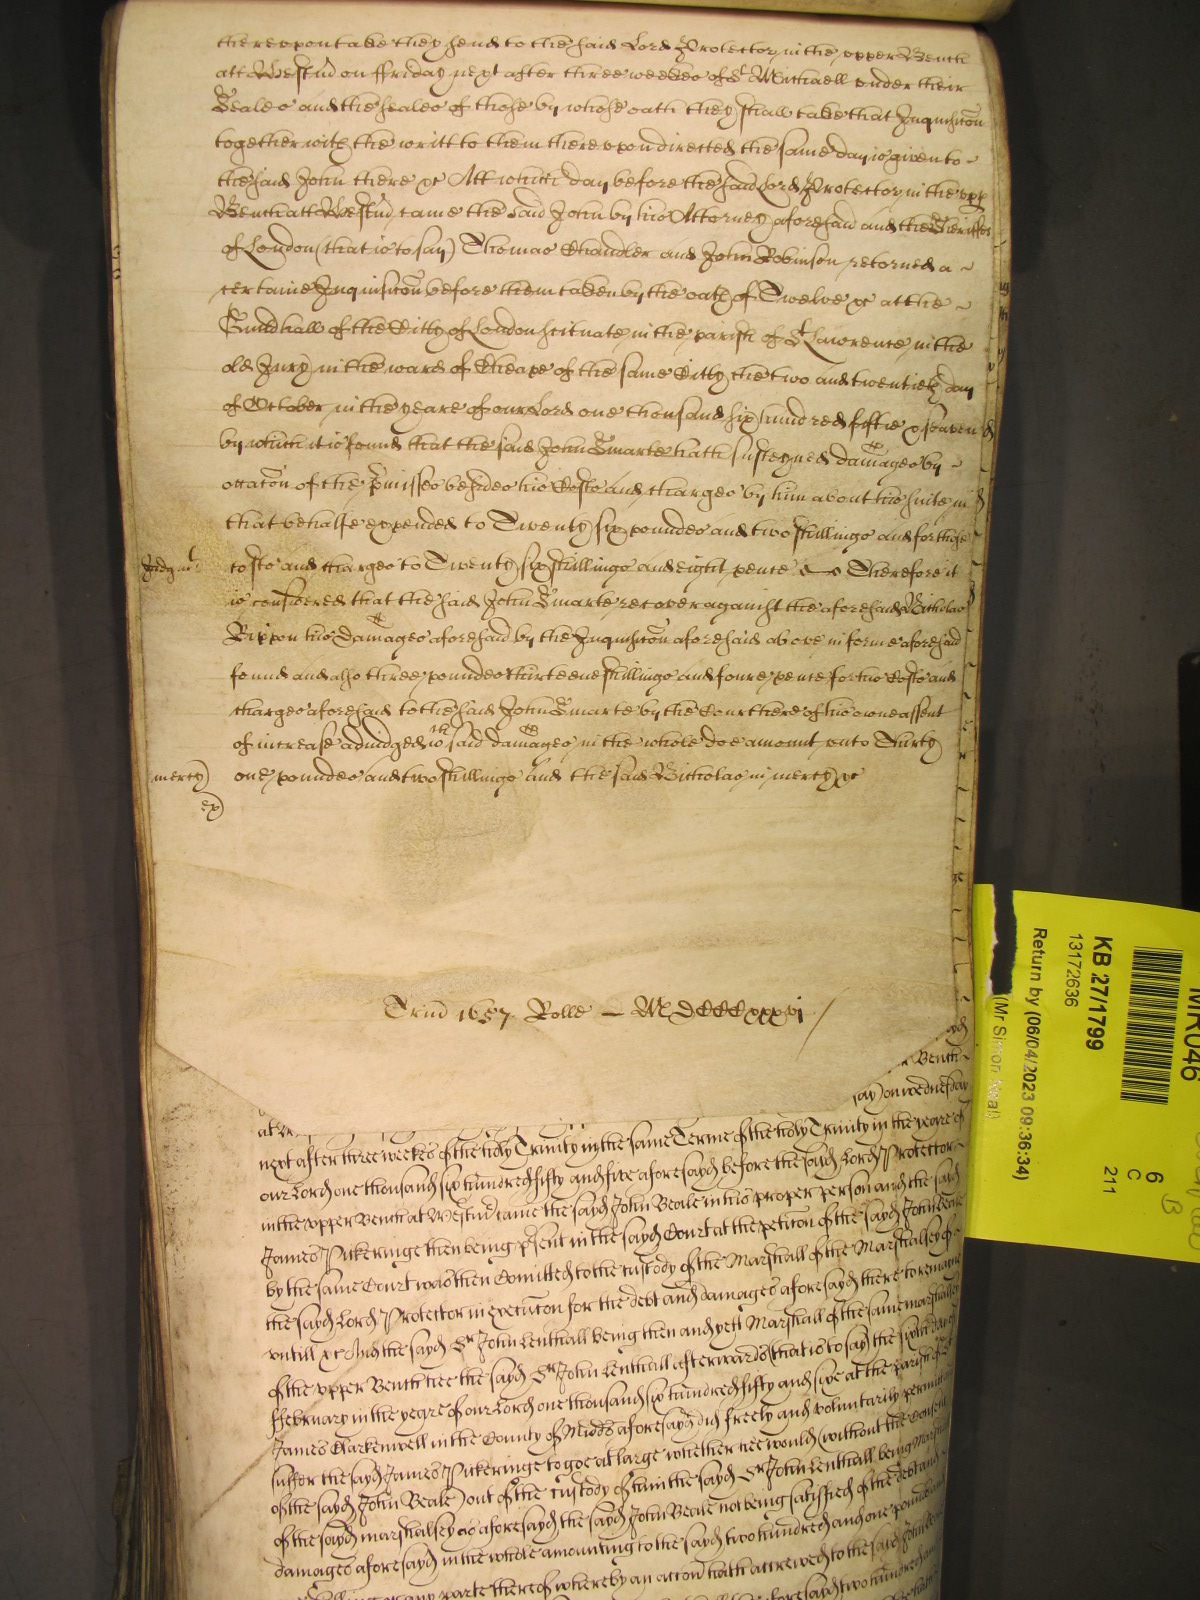 thereupon take they send to the said Lord Protector in the upper Bench
att Westm̄ on ffriday next after three weekes of St Michaell under their
Seales and the seales of those by whose oath they shall take that Inquisicōn
together with the writt to them thereupon directed the same day is given to
the said John there &c Att which day before the said Lord Protector in the upp
Bench att Westm̄ came the said John by his Attorney aforesaid and the Sheriffes
of London (that is to say) Thomas Chandler and John Robinson returned a
certaine Inquisicōn before them taken by the oath of Twelve &c at the
Guildhall of the Citty of London scituate in the parish of St Lawrence in the
old Jury in the ward of Cheape of the same Citty the two and twentieth day
of October in the yeare of our Lord one thousand six hundred fiftie & seaven
by which it is found that the said John Smarte hath susteyned damages by
occacōn of the p̄misses besides his Costs and charges by him about his suite in
that behalfe expended to Twenty six poundes and two shillings and for those
Judgmt
costs and charges to Twenty six shillings and eight pence Therefore it
is considered that the said John Smarte recover against the aforesaid Nicholas
Rippon his Damages aforesaid by the Inquisicōn aforesaid above in forme aforesaid
found and also three poundes thirteene shillings and foure pence for his Costs and
charges aforesaid to the said John Smarte by the Court here of his owne assent
of increase adiudged wch said damages in the whole doe amount unto Thirty
mercy
one poundes and two shillings And the said Nicholas in mercy &c
ex
Trin̄ 1657 Rolle — MDCCCxxxvi
Bench
say) on wednesday
next after three weekes of the holy Trinity in the same Terme of the holy Trinity in the yeare of
our Lord one thousand six hundred fifty and five aforesayd before the sayd Lord Protector
in the upper Bench at Westm̄ came the sayd John Beale in his proper person and the sayd
James Pickeringe then being p̄sent in the sayd Court at the peticōn of the sayd John Beale
by the same Court was then Comitted to the custody of the Marshall of the Marshalsey of
the sayd Lord Protector in execucōn for the debt and damages aforesayd there to remayne
untill &c And the sayd Sr John Lenthall being then and yett Marshall of the same marshalsey
of the upper Bench hee the sayd Sr John Lenthall afterwards (that is to say) the sixth day of
ffebruary in the yeare of our Lord one thousand six hundred fifty and sixe at the parish of St
James Clarkenwell in the County of Midd̄s aforesayd did freely and voluntarily permitt
suffer the sayd James Pickeringe to goe at large whether hee would (without the Consent
of the sayd John Beale) out of the custody of him the sayd Sr John Lenthall being Marshall
of the sayd marshalsey as aforesayd the sayd John Beale not being satisfied of the debt and
damages aforesayd in the whole amounting to the sayd two hundred and one pounds and
or any parte thereof whereby an accōn hath accrewed to the sayd John Beale
aforesayd two hundred and
KB 27/1799
13172636
Return by (06/04/2023 09:36:34)
(Mr Simon Neal)
MR046
6
C
211